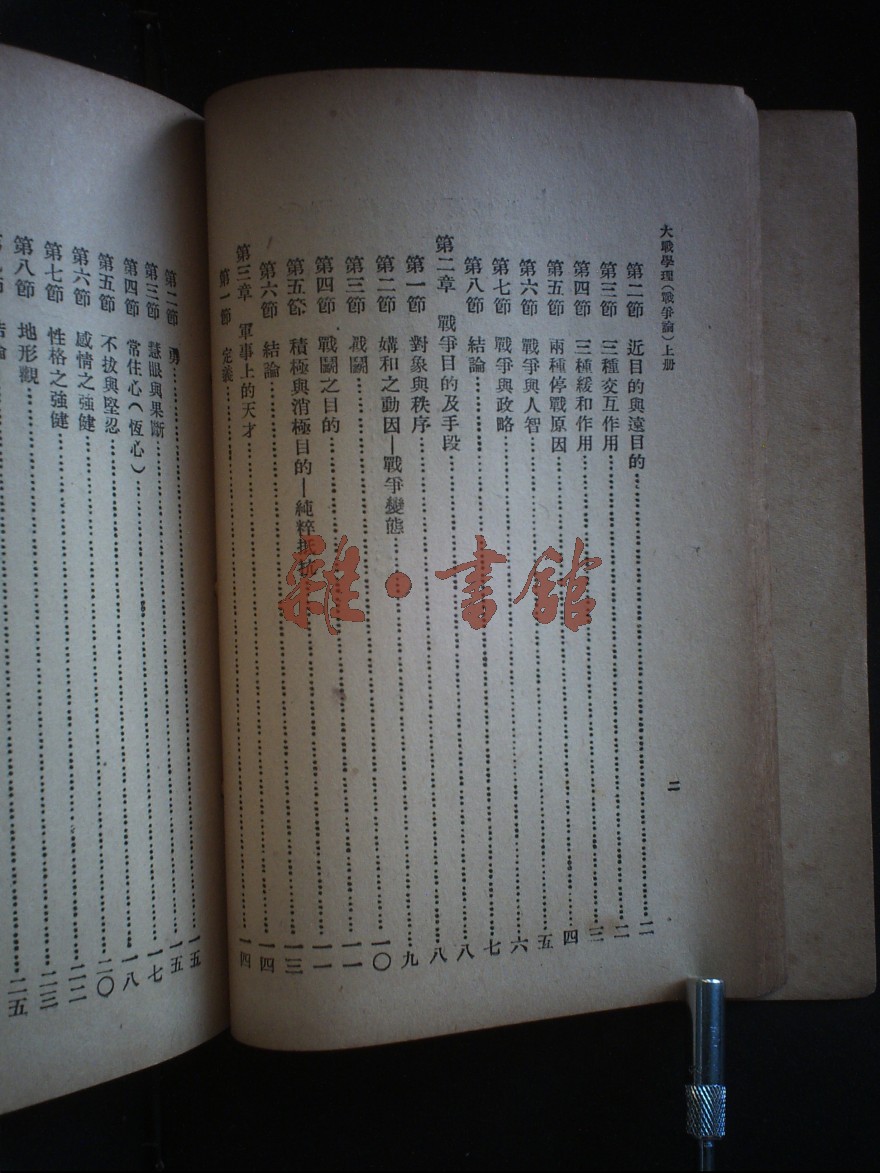 大戰學理(戰爭論)上册
二
第二節 近目的與遠目的……二
第三節 三種交互作用……二
第四節 三種緩和作用……三
第五節 兩種停戰原因……四
第六節 戰爭與人智……五
第七節 戰爭與政略……六
第八節 結論……七
第二章 戰爭目的及手段……八
第一節 對象與秩序……八
第二節 媾和之動因—戰爭變態……九
第三節 戰鬭……一〇
第四節 戰鬭之目的……一一
第五節 積極與消極目的—純粹抵抗……一一
第六節 結論……一三
第三章 軍事上的天才……一四
第一節 定義……一四
第二節 勇……一五
第三節 慧眼與果斷……一五
第四節 常住心(恆心)……一七
第五節 不拔與堅忍……一八
第六節 感情之強健……二〇
第七節 性格之強健……二二
第八節 地形觀……二三
結論……二五
雜·書館